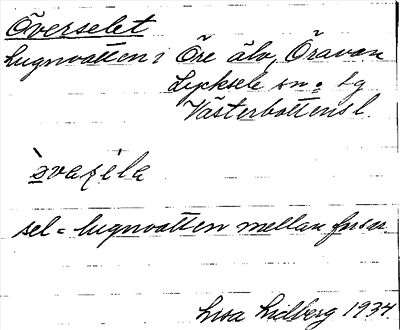 Överselet
lugnvatten i Öre älv, Öravan
Lycksele sn o. tg
Västerbottens l.
sel = lugnvatten mellan forsar
Lisa Lidberg 1934.